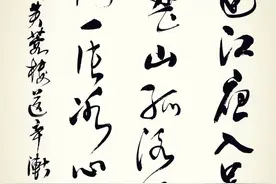 連江夜入吳
楚山孤洛
一片冰心
芙蓉樓送辛漸